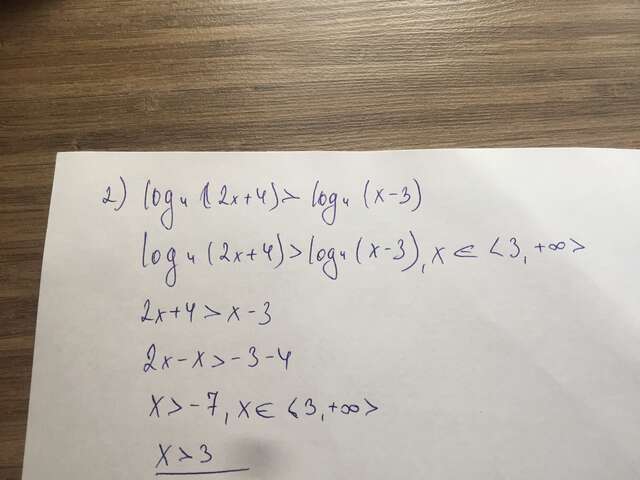 2) log₄(2x+4) > log₄(x-3)
log₄(2x+4) > log₄(x-3), x ∈ <3, +∞>
2x+4 > x-3
2x-x > -3-4
x > -7, x ∈ <3, +∞>
x > 3